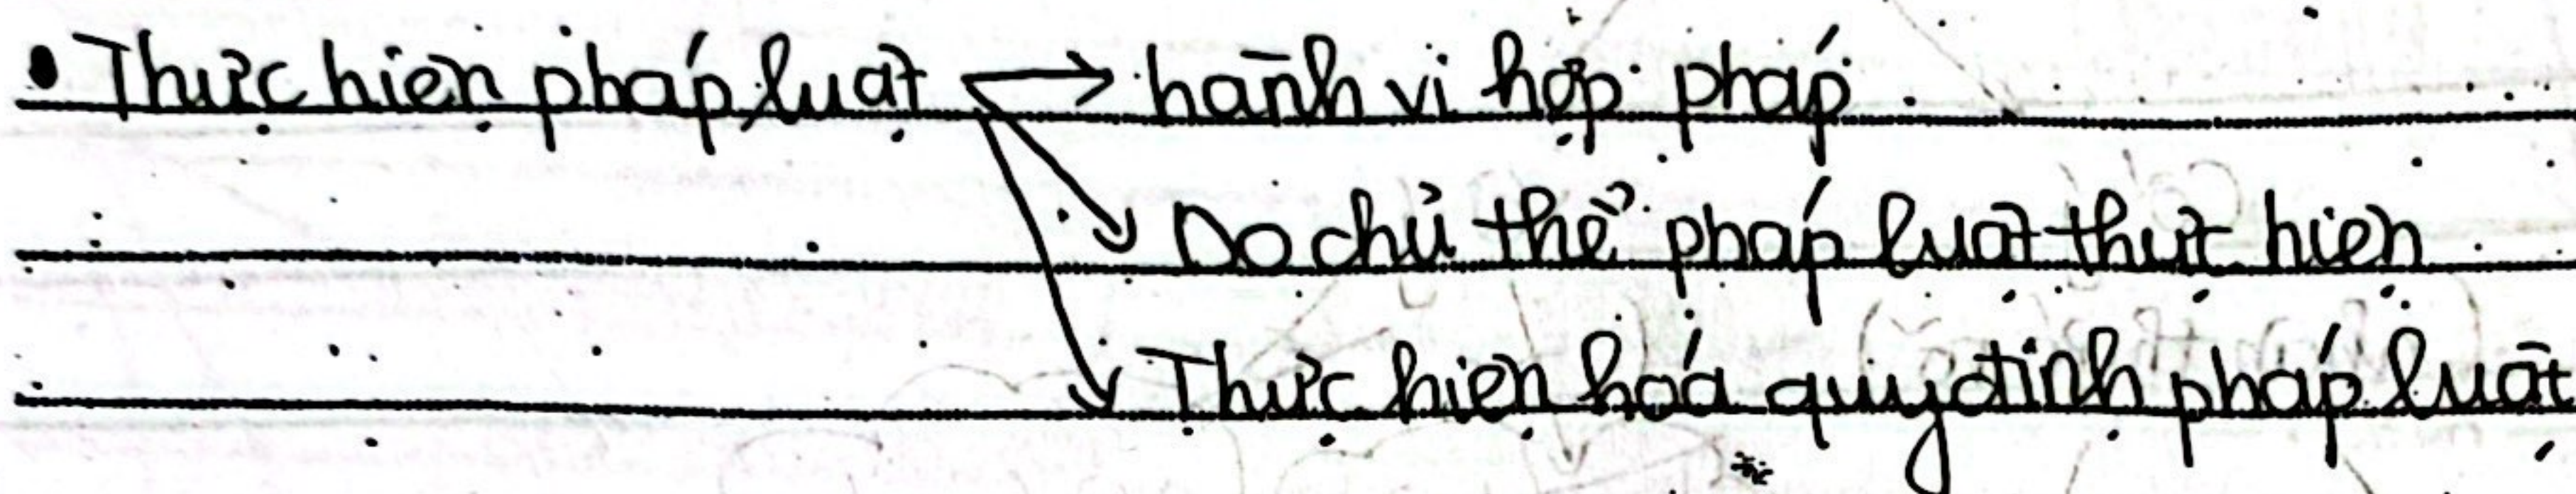 • Thực hiện pháp luật → hành vi hợp pháp.
Do chủ thể pháp luật thực hiện.
Thực hiện hoá quy định pháp luật